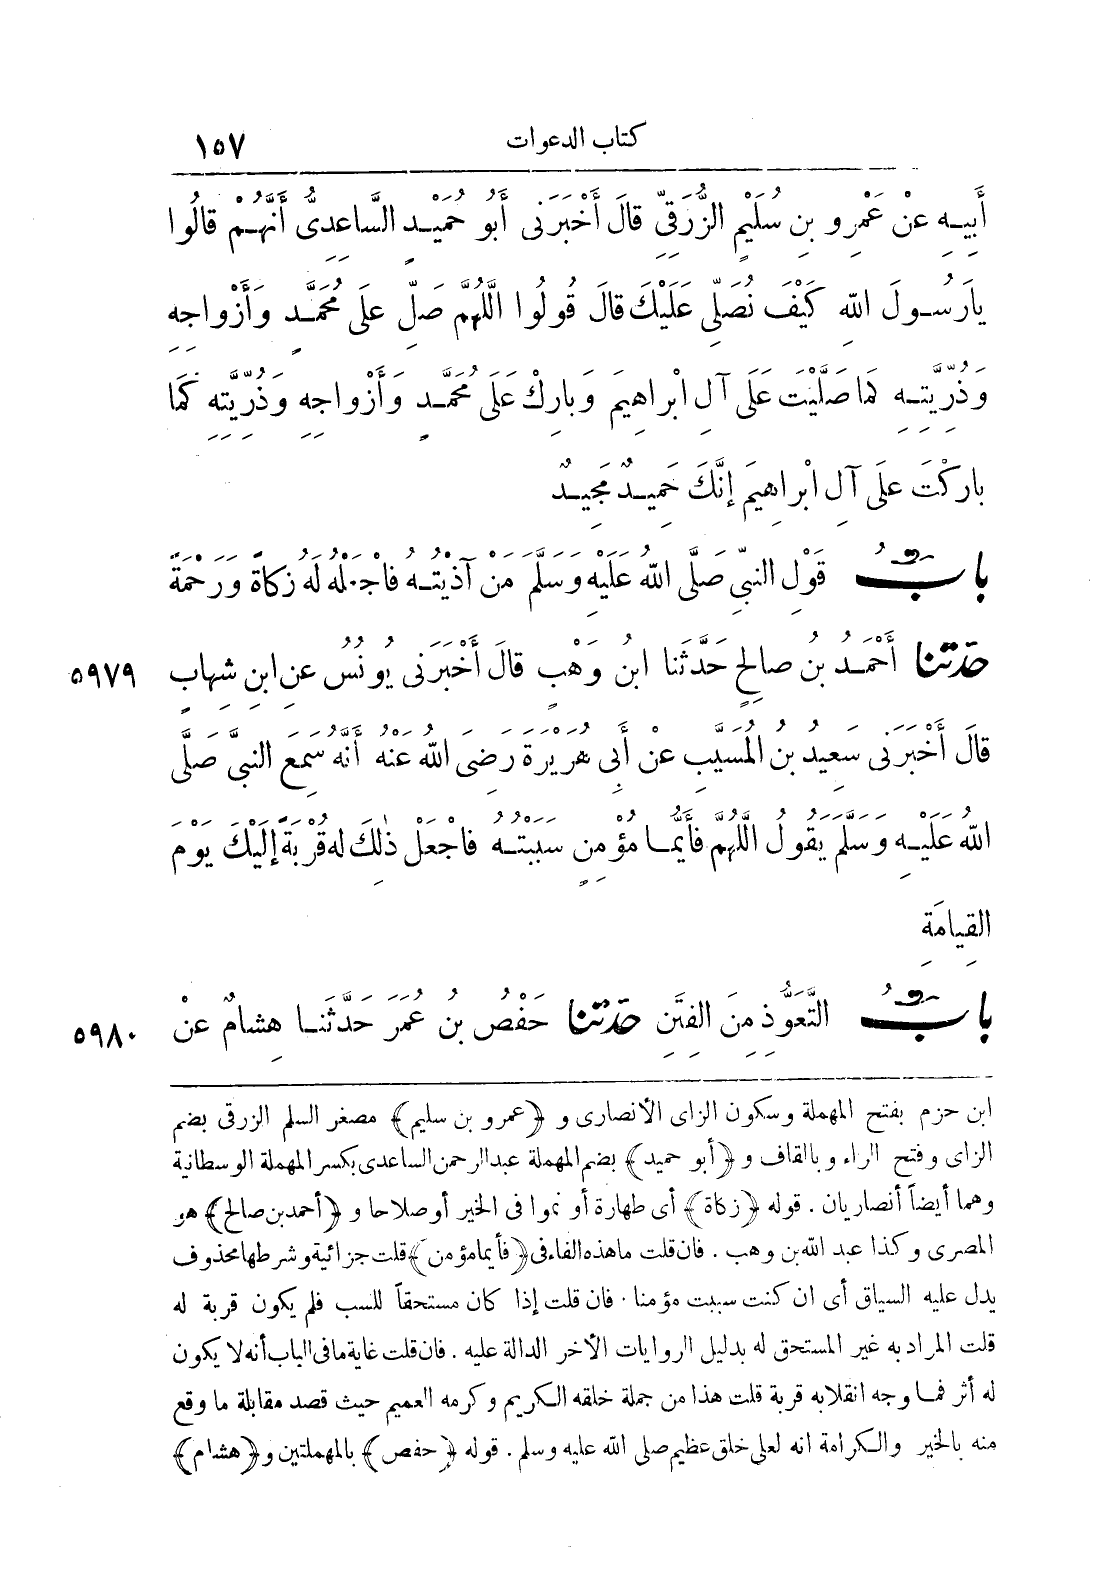 كتاب الدعوات ١٥٧
أَبِيهِ عَنْ عَمْرِو بنِ سُلَيْمٍ الزُّرَقِيِّ قالَ أَخْبَرَنِى أَبُو حُمَيْدٍ السَّاعِدِىُّ أَنَّهُمْ قالُوا
يارَسُولَ اللهِ كَيْفَ نُصَلِّى عَلَيْكَ قالَ قُولُوا اللَّهُمَّ صَلِّ عَلَى مُحَمَّدٍ وَأَزْواجِهِ
وَذُرِّيَّتِهِ كَمَا صَلَّيْتَ عَلَى آلِ ابْراهِيمَ وَبارِكْ عَلَى مُحَمَّدٍ وَأَزْواجِهِ وَذُرِّيَّتِهِ كَمَا
بارَكْتَ عَلَى آلِ ابْراهِيمَ إِنَّكَ حَمِيدٌ مَجِيدٌ
بابُ قَوْلِ النبيِّ صَلَّى اللهُ عَلَيْهِ وَسَلَّمَ مَنْ آذَيْتُهُ فاجْعَلْهُ لَهُ زكاةً وَرَحْمَةً
حَدَّثَنا أَحْمَدُ بنُ صالِحٍ حَدَّثَنا ابنُ وَهْبٍ قالَ أَخْبَرَنِى يُونُسُ عَنِ ابنِ شِهابٍ ٥٩٧٩
قالَ أَخْبَرَنِى سَعِيدُ بنُ المُسَيَّبِ عَنْ أَبِى هُرَيْرَةَ رَضِىَ اللهُ عَنْهُ أَنَّهُ سَمِعَ النبىَّ صَلَّى
اللهُ عَلَيْهِ وَسَلَّمَ يَقُولُ اللَّهُمَّ فَأَيُّمَا مُؤْمِنٍ سَبَبْتُهُ فاجْعَلْ ذٰلِكَ لَهُ قُرْبَةً إِلَيْكَ يَوْمَ
القِيامَةِ
بابُ التَّعَوُّذِ مِنَ الفِتَنِ حَدَّثَنا حَفْصُ بنُ عُمَرَ حَدَّثَنا هِشامٌ عَنْ ٥٩٨٠
ابن حزم بفتح المهملة وسكون الزاى الأنصارى و ﴿عمرو بن سليم﴾ مصغر السلم الزرقى بضم
الزاى وفتح الراء وبالقاف و ﴿أبو حميد﴾ بضم المهملة عبدالرحمن الساعدى بكسر المهملة الوسطانية
وهما أيضاً أنصاريان . قوله ﴿زكاة﴾ أى طهارة أو نموا فى الخير أو صلاحا و ﴿أحمد بن صالح﴾ هو
المصرى وكذا عبد الله بن وهب . فان قلت ما هذه الفاء فى ﴿فأيما مؤمن﴾ قلت جزائية وشرطها محذوف
يدل عليه السياق أى ان كنت سببت مؤمنا . فان قلت إذا كان مستحقاً للسب فلم يكون قربة له
قلت المراد به غير المستحق له بدليل الروايات الأخر الدالة عليه . فان قلت غاية ما فى الباب أنه لا يكون
له أثر فما وجه انقلابه قربة قلت هذا من جملة خلقه الكريم وكرمه العميم حيث قصد مقابلة ما وقع
منه بالخير والكرامة انه لعلى خلق عظيم صلى الله عليه وسلم . قوله ﴿حفص﴾ بالمهملتين و ﴿هشام﴾